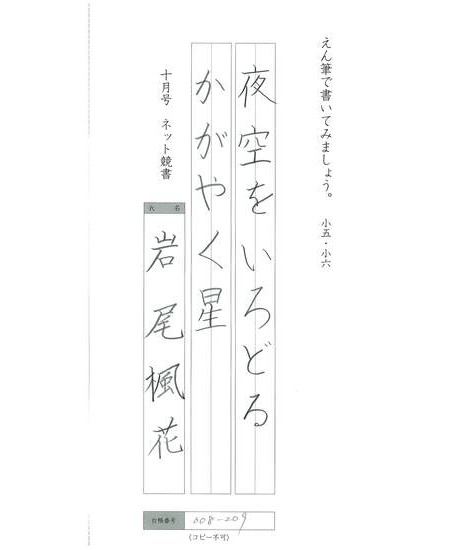 えん筆で書いてみましょう。 小五・小六
夜空をいろどる
かがやく星
十月号 ネット競書
氏 名
岩尾楓花
台帳番号 208-209
(コピー不可)